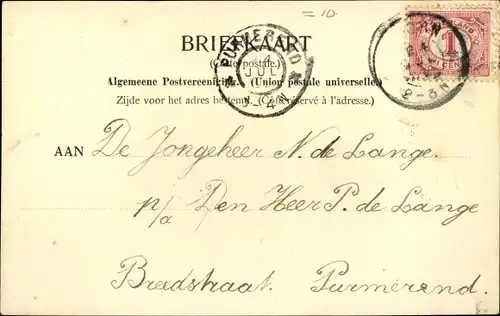 = 10
BRIEFKAART
(Carte postale.)
Algemeene Postvereeniging. (Union postale universelle.)
Zijde voor het adres bestemd. (Côté réservé à l'adresse.)
PURMEREND
JUL
4-N
1
AAN De Jongeheer N. de Lange.
p/a Den Heer P. de Lange
Breedstraat. Purmerend.